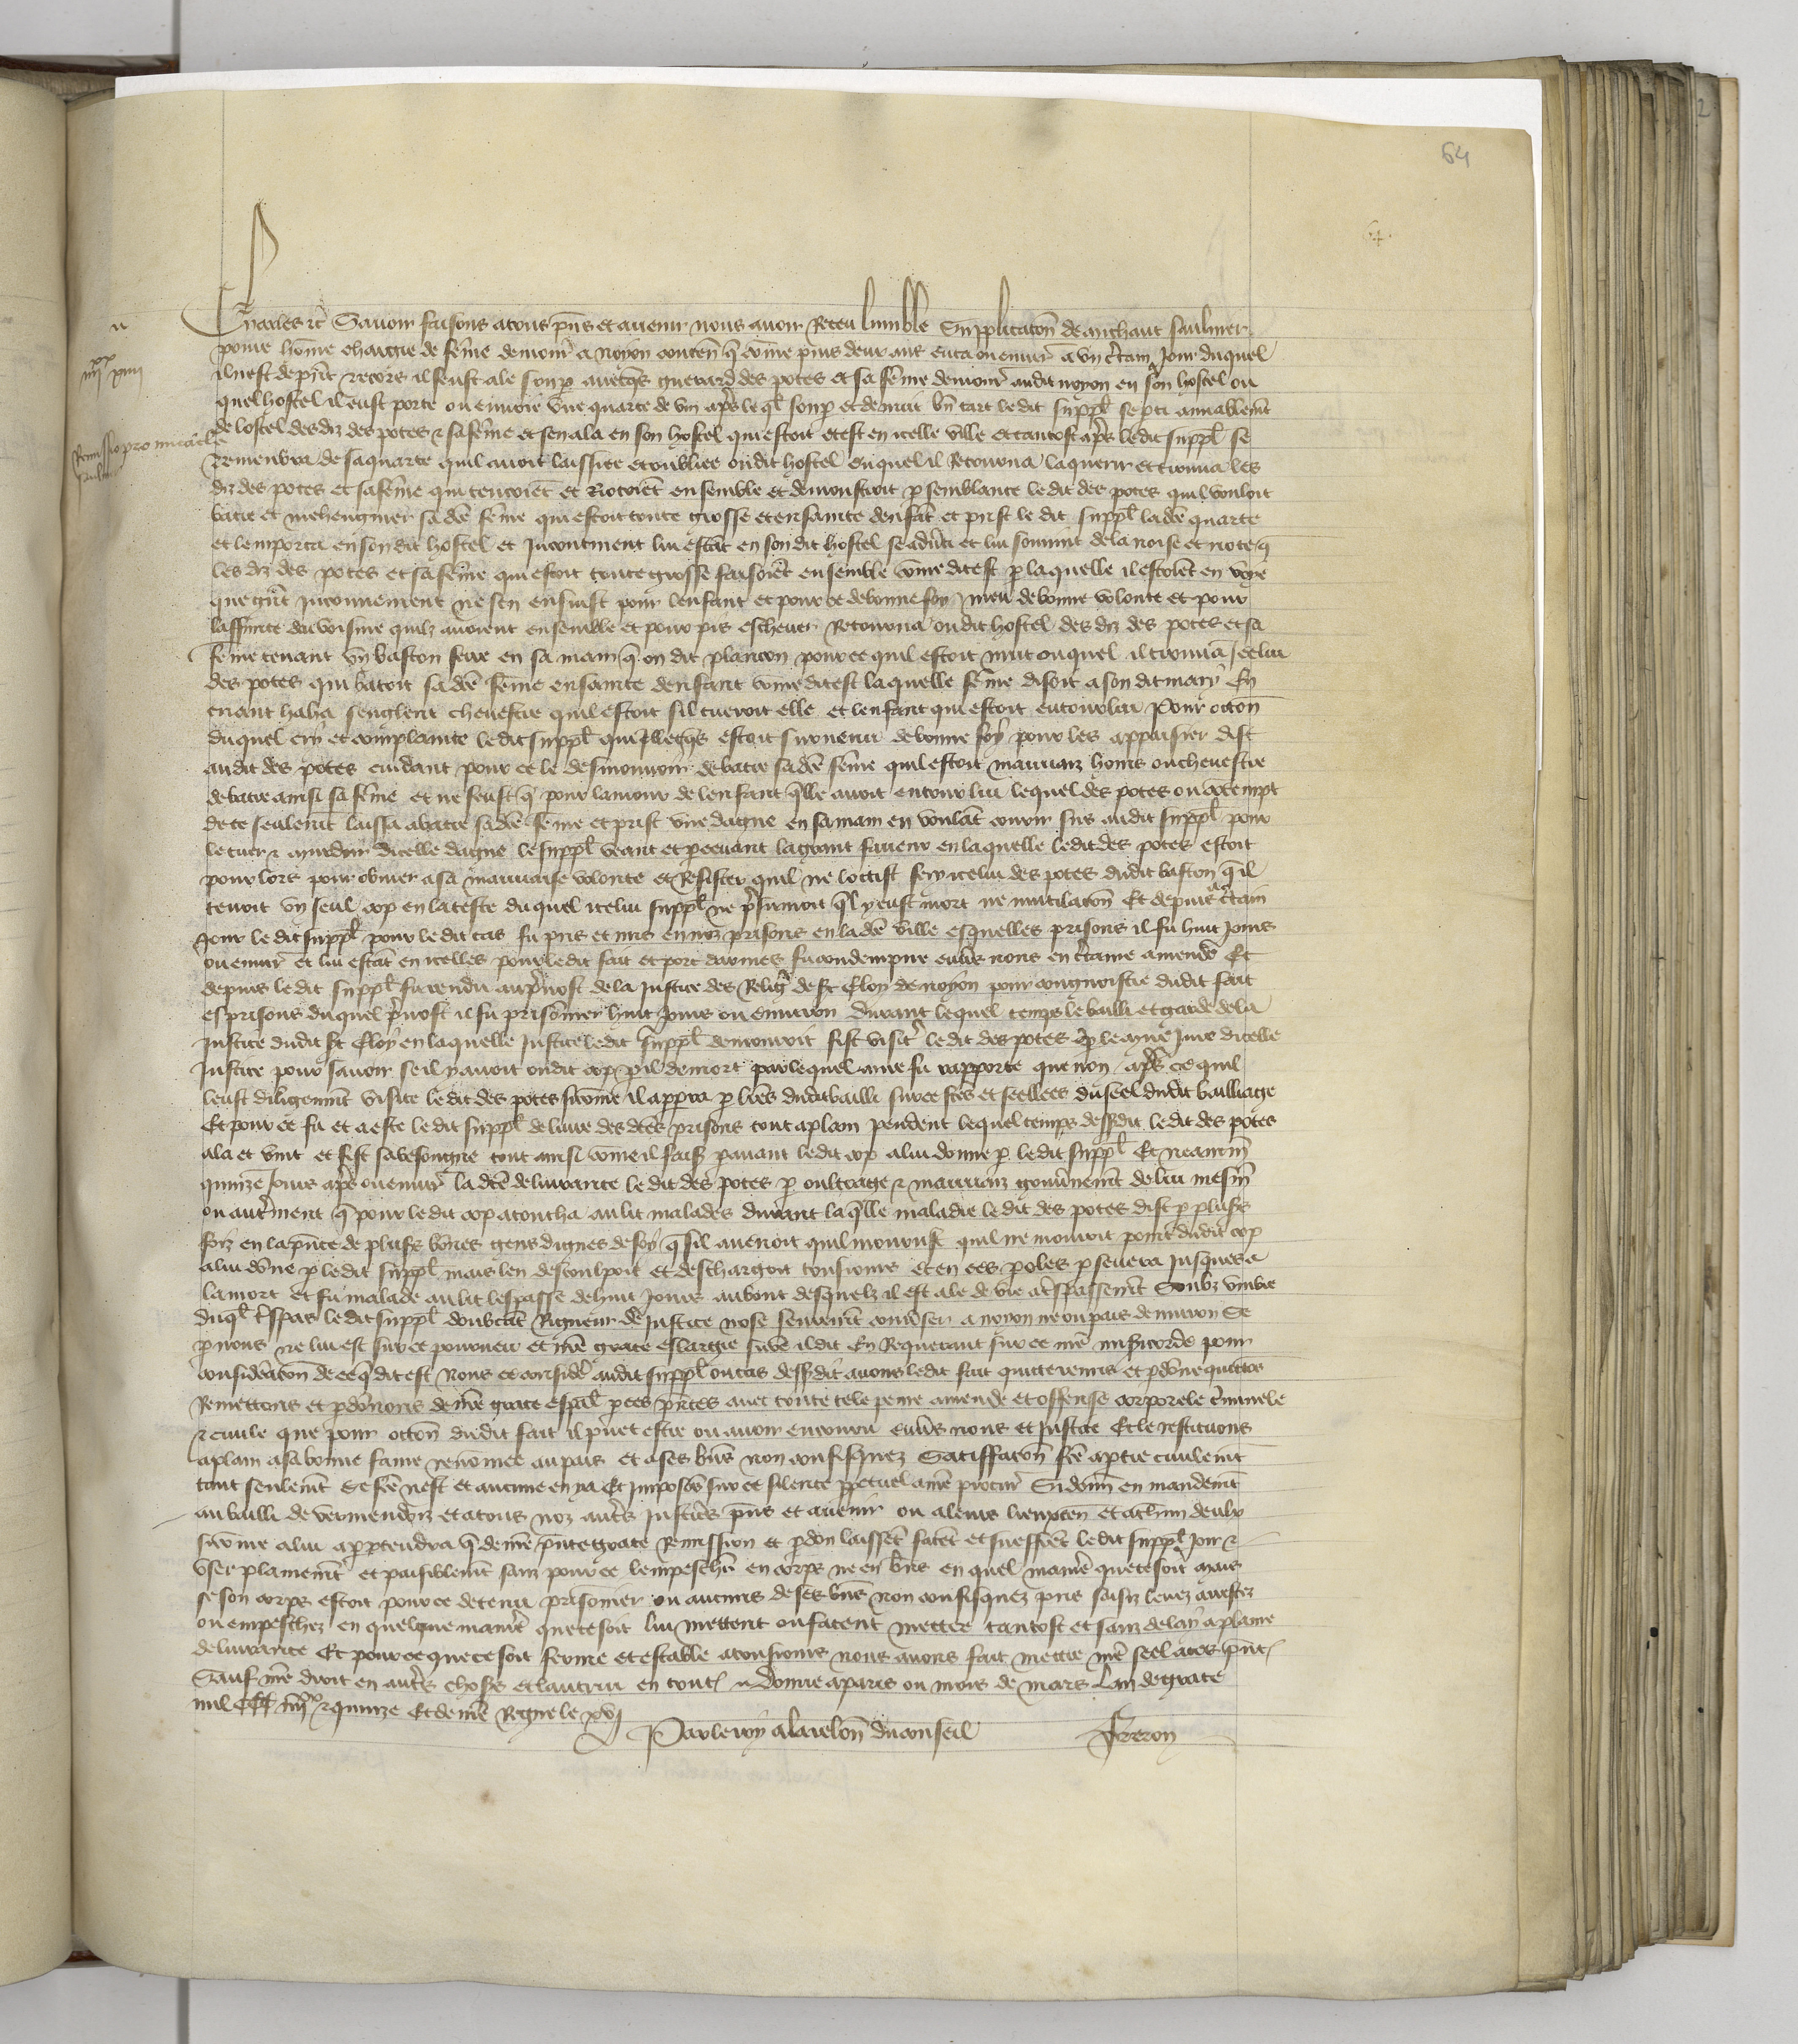 64
64.
Charles etc Savoir faisons a tous pns et avenir nous avoir Receu lumble Supplicaton de michaut saulnier
povre home chargie de feme demour a Noyon conten que come puis deux ans enca ou envir a un ctain Jour duquel
il nest depnt recors il feust ale soup avecqs guerard des potes et sa feme demour audit noyon en son hostel ou
quel hostel il eust porte ou envoie une quarte de vin apres leql soup et de nuit bn tart ledit suppl se pti amiablemt
de lostel desdiz des potes et sa feme et sen ala en son hostel qui estoit et est en icelle ville et tantost apres ledit suppl se
Remenbra de sa quarte quil avoit laissiee et oubliee oudit hostel ouquel il Retourna la querir et trouva les
diz des potes et sa feme qui tencoiet et Riotoiet ensemble et demonstroit p semblance ledit des potes quil vouloit
batre et mehengnier sa dce feme qui estoit toute grosse et ensainte denfat et prist le dit suppl ladce quarte
et lemporta en son dit hostel et Incontinent lui estat en son dit hostel se advti et lui souvint de la noise et riote q
les diz des potes et sa feme qui estoit toute grosse faisoiet ensemble come dit est p laquelle il estoiet en voye
que gnt Inconvenient ne sen ensuist pour lenfant et pour ce de bonne foy meu de bonne volonte et pour
laffinite du voisine quilz avoient ensemble et pour pis eschever Retourna oudit hostel des diz des potes et sa
feme tenant un baston ferre en sa main q on dit plancon pour ce quil estoit nuit ouquel il trouva icelui
des potes qui batoit sa dce feme ensainte denfant come dit est laquelle feme disoit a son dit mary En
criant haha senglent chevestre quil estoit sil tueroit elle et lenfant qui estoit entour lui Pour occon
duquel cry et complainte ledit suppl qui illecqs estoit survenu de bonne foy pour les appaisier dist
audit des potes cuidant pour ce le desmouvoir de batre sadce feme quil estoit mauvaiz homs ou chevestre
de batre ainsi sa feme et ne feust q pour lamour de lenfant qelle avoit entour lui lequel des potes ou contempt
de ce seulemt laissa a batre sadce feme et prist une dague en sa main en voulat courir sus audit suppl pour
le tuer et murdrir dicelle dague le suppl veant et pcevant la grant fureur en laquelle ledit des potes estoit
pour lors pour obvier a sa mauvaise volonte et Resister quil ne loccist fery icelui des potes dudit baston q il
tenoit un seul cop en la teste duquel icelui suppl ne psumoit ql y eust mort ne mutilacon Et depuis a ctain
Jour ledit suppl pour ledit cas fu pris et mis en noz prisons en ladce ville esquelles prisons il fu huit jours
ou envir et lui estat en icelles pour ledit fait et port darmes fu condempne envs nous en ctaine amende Et
depuis ledit suppl fu rendu au pvost de la Justice des Relig de St Eloy de noyon pour congnoistre dudit fait
es prisons duquel pvost il fu prisonier huit jours ou environ Durant lequel temps le bailli et garde de la
Justice dudit St Eloy en laquelle Justice ledit suppl demouroit fist visit ledit des potes p le mire Jure dicelle
Justice pour savoir se il y avoit oudit cop pil de mort par lequel mire fu rapporte que non aps ce quil
leust diligemmt visite ledit des potes si come il apperra p lres dudit bailli sur ce fces et seellees du seel dudit bailliage
Et pour ce fu et a este ledit suppl delivre desdces prisons tout a plain pendent lequel temps dessdit ledit des potes
ala et vint et fist sa besongne tout ainsi come il fais pavant ledit cop a lui donne p ledit suppl Et neantm
quinze jours apres ou envir la dce delivrance ledit des potes p oultrage et mauvaiz gouvnemt de lui mesm
ou autrement q pour ledit cop acoucha au lit malades durant laqlle maladie ledit des potes dist p plus
foiz en la pnce de plus bones gens dignes de foy q sil avenoit quil mourust quil ne mouroit point dudit cop
a lui done p ledit suppl mais len descoulpoit et deschargoit tousjours et en ces paroles psevera Jusques a
la mort et fu malade au lit lespasse de huit jours au bout desquelz il est ale de vie a tspassemt Soubz umbre
duql tspas ledit suppl doubtat Rigueur de Justice nose seuremt convser a noyon ne ou pais denviron Se
p nous ne lui est sur ce pourveu et nre grace eslargie si come il dit En Requerant sur ce nre misicorde pour
consideracon de ce q dit est Nous ce considere audit suppl ou cas dessdit avons ledit fait quitte remis et pdone quittons
Remettons et pdonons de nre grace espal p ces pntes avec toute tele peine amende et offense corporele criminele
et civile que pour occon dudit fait il puet estre ou avoir encouru envs nous et Justice Et le restituons
a plain a sa bonne fame renomee au pais et a ses bns non confisquez Satisfacon fce a ptie civilemt
tant seulemt se fce nest et aucune en y a Et Imposons sur ce silence ppetuel a nre procur Si donn en mandemt
au bailli de Vermendoiz et a tous noz autres Justiciers pns et avenir ou a leurs lieuxten et a chun deulx
si come a lui appartendra q de nre pnte grace Remission et pdon laissent facent et sueffrent ledit suppl joir et
user plainemt et paisiblemt sanz pour ce lempeschr en corps ne en bns en quel manie que ce soit mais
se son corps estoit pour ce detenu prisonier ou aucuns de ses bns non confisquez pris saisiz levez arrestez
ou empeschez en quelque manie que ce soit lui mettent ou facent mettre tantost et sanz delay a plaine
delivrance Et pour ce que ce soit ferme et estable a tousjours nous avons fait mettre nre seel a ces pnt
Sauf nre droit en autres choses et lautrui en tout Donne a paris ou mois de mars Lan de grace
mil CCC iiij xx et quinze Et de nre Regne le xvj
Par le roy a la relon du conseil
Freron
iiij xx xiiii
Remissio pro michaele
saulnier